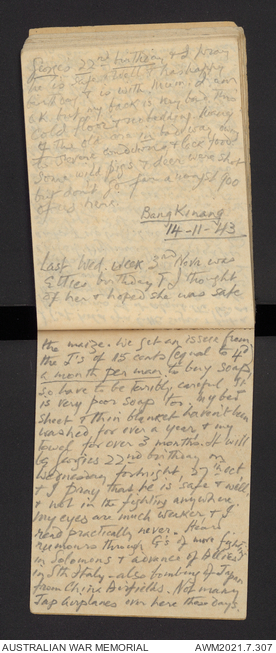 22nd birthday & I pray
he is safe & well & has happy
birthday & is with Mum. I am
O.K. but my back is very bad. Thin
cold floor & no bedding. Many
of the old
to severe conditions & lack food.
Some wild pigs & deer were shot
but don't go far amongst 900
of us here.
Bangkinang
14-11-43
Last Wed. week 3rd Nova was
Ettie's birthday & I thought
of her & hoped she was safe
the maize. We get an issue from
the J's of 15 cents (equal to 4d)
a month per man to buy soap,
so have to be terribly careful. It
is very poor soap too. My bed
sheet & thin blanket haven't been
washed for over a year & my
towel for over 3 months. It will
be 22nd birthday on
Wednesday fortnight, 27th Oct
& I pray that he is safe & well,
& not in the fighting anywhere
My eyes are much weaker & I
read practically never. Hear
rumours through G's of more fighting
in Solomons & advance of Allies
in Sth Italy - also bombing of Japan
from China Airfields. Not many
Jap airplanes over here these days.
AUSTRALIAN WAR MEMORIAL
AWM2021.7.307